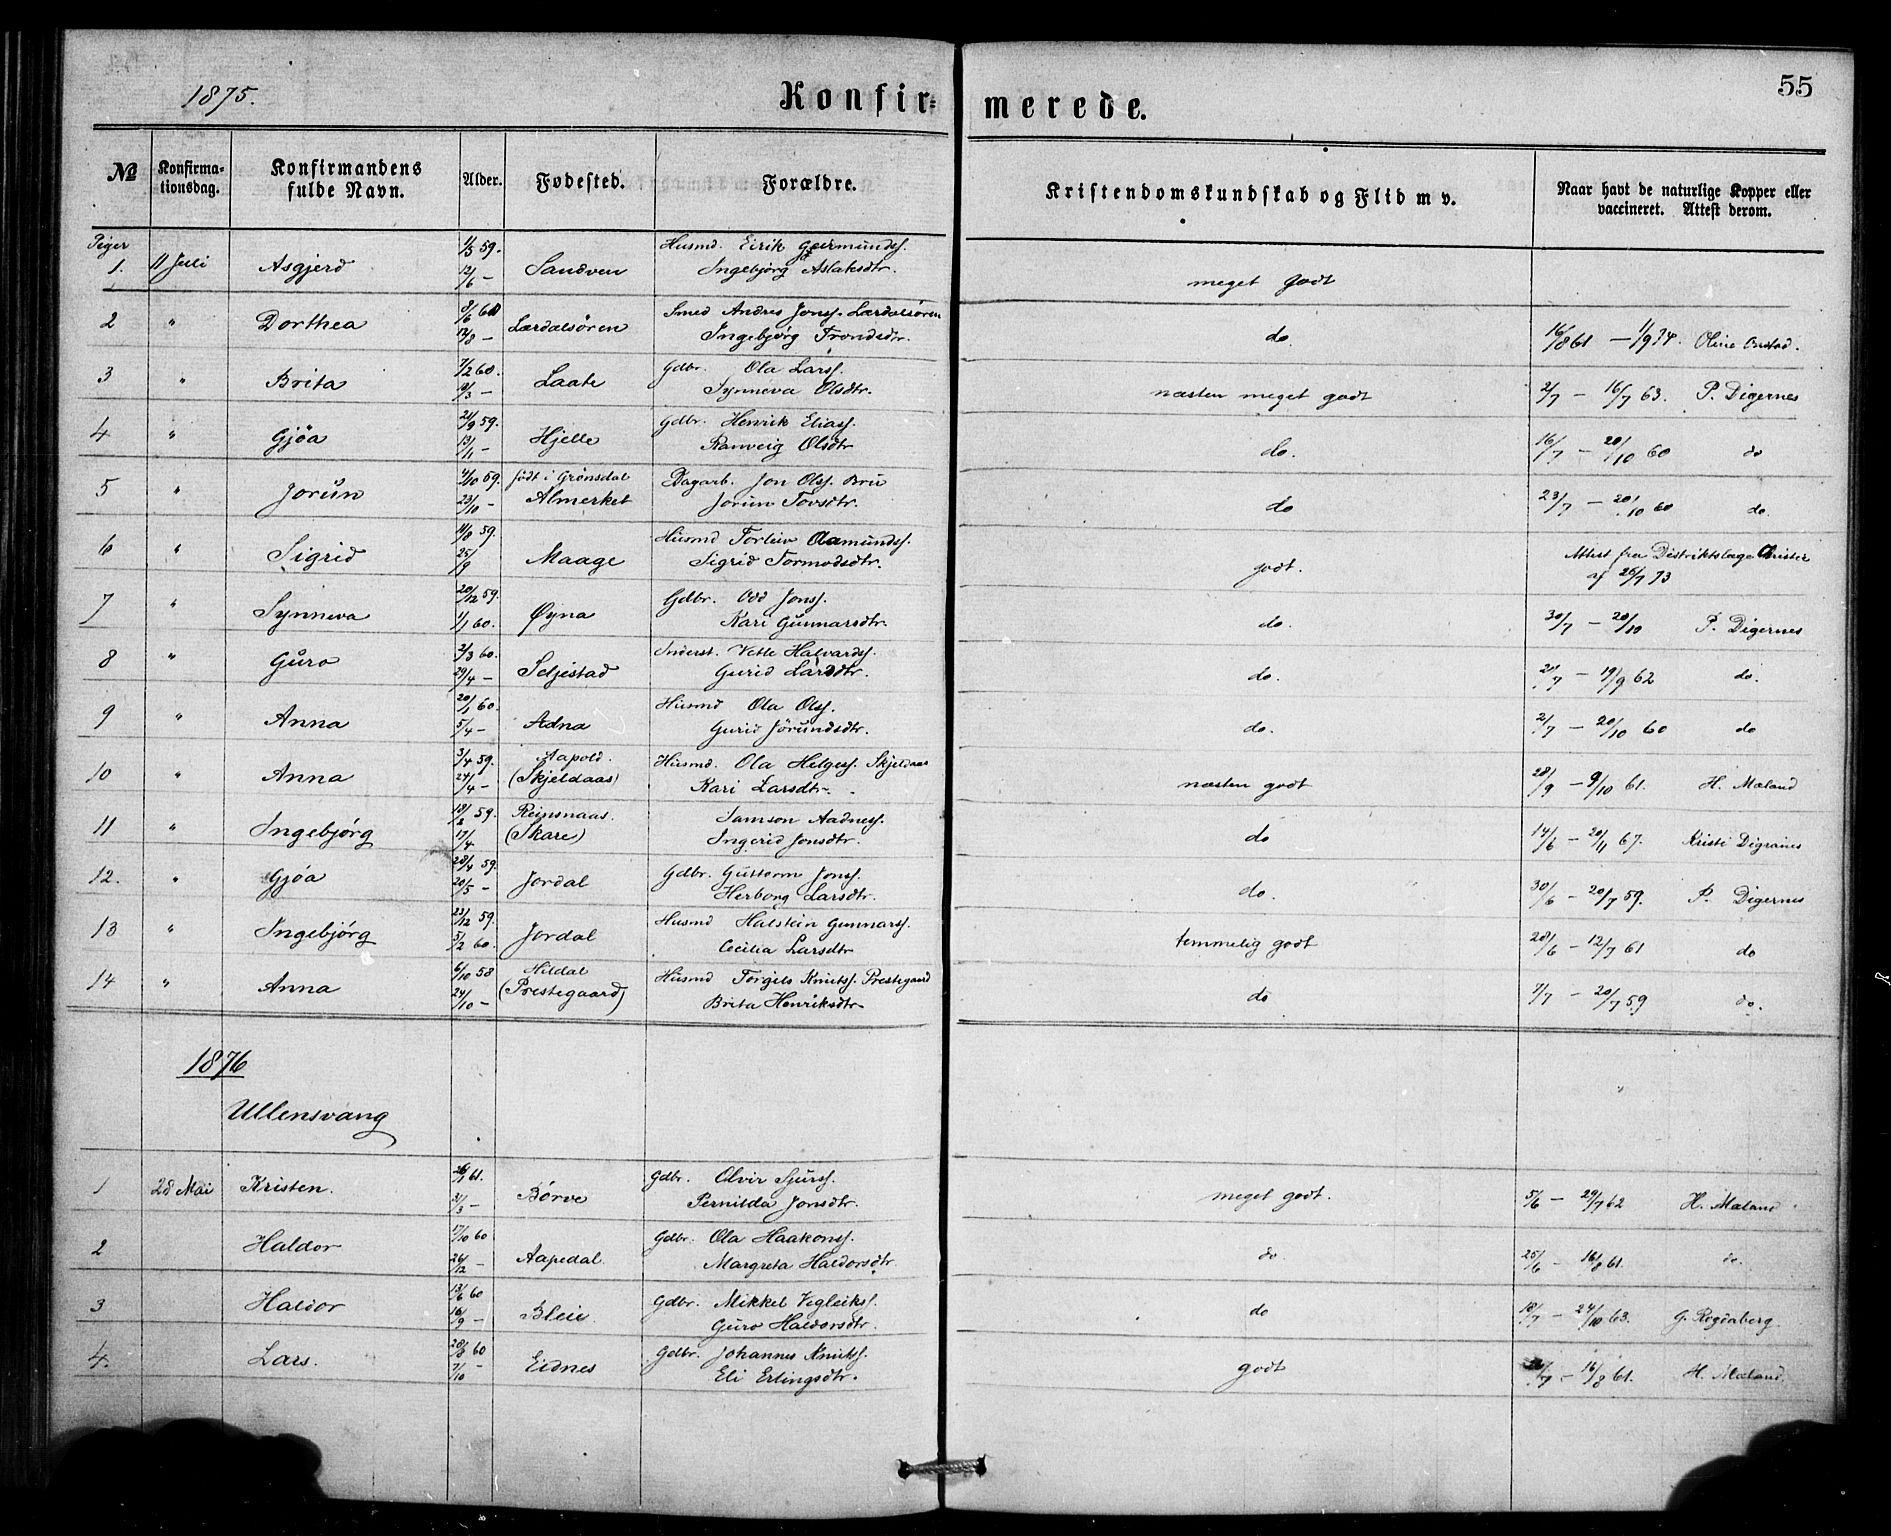 1875.
Konfir=
merede.
55
№
Konfirma-
tionsdag.
Konfirmandens
fulde Navn.
Alder.
Fodested.
Forældre.
Kristendomskundskab og Flid m v.
Naar havt de naturlige Kopper eller
vaccineret. Attest derom.
Piger
1. 11 Juli Asgjerd 1/5 59. 12/6 – Sandven Husmd Eirik Geirmundss.
Ingebjörg Aslaksdtr. meget godt
2 " Dorthea 12/8 – Lærdalsören Smed Andres Jonss. Lærdalsören
Ingebjørg Trondsdtr. do. 16/8 61 – 11/9 74. Oline
3 " Brita 7/2 60. – Laate Gdbr. Ola Larss.
Synneva Olsdtr. næsten meget godt 2/7 – 16/7 63. P. Digernes
4 " Gjøa 21/9 59. 13/11 – Hjelle Gdbr. Henrik Eliass.
Ranveig Olsdtr do. 16/7 – 20/10 60 do
5 " Jorun 4/10 59. 23/10 – født i Grönsdal
Almerket Dagarb. Jon Olss. Bru
Jorun Tovsdtr. do 23/7 – 20/10 60 do.
6 " Sigrid 11/8 59 25/9 Maage Husmd Torleiv Olamundss.
Sigrid Tormodsdtr. godt. Attest fra Distriktslæge
af 26/7 73
7 " Synneva 20/12 59. 1/1 60. Øyna Gdbr. Odd Jonss.
Kari Gunnarsdtr. do. 30/7 – 20/10 P. Digernes
8 " Guro 2/3 60. 29/4 – Seljestad Inderst. Vetle Halvardss.
Gurid Larsdtr. do. 2/7 – 19/9 62 do.
9 " Anna 20/1 60. 5/4 – Adna Husmd Ola Olss.
Gurid Jörundsdtr. do. 2/7 – 20/10 60 do
10 " Anna 3/4 59. 24/4 – Aapold.
(Skjeldaas) Husmd. Ola Helgess. Skjeldaas
Kari Larsdtr. næsten godt 28/9 – 9/10 61. H. Mæland
11 " Ingebjørg 59. 17/4 Reinsnaas.
(Skare) Samson Aadness.
Ingerid Jonsdtr. do 14/6 – 20/11 67. Kristi Digranes
12. " Gjøa 28/4 59. 20/5 – Jordal Gdbr. Guttorm Jonss.
Herborg Larsdtr. do. 30/6 – 20/7 59. P. Digernes
13 " Ingebjørg 23/12 59. 5/2 60. Jordal Husmd Halstein Gunnarss.
Cecilia Larsdtr temmelig godt 28/6 – 12/7 61 do
14 " Anna 6/10 58 24/10 – Hildal
(Prestegaard) Husmd Torgils Knutss. Prestegaard
Brita Henriksdtr do 7/7 – 20/7 59 do.
1876
Ullensvang
1 28 Mai Kristen. 61. 31/3 – Börve Gdbr. Olvir Sjurss.
Pernilda Jonsdtr. meget godt. 5/6 – 29/7 62 H. Mæland
2 Haldor 17/10 60 26/12 – Aapedal. Gdbr. Ola Haakonss.
Margreta Haldorsdtr do 25/6 – 16/8 61. do.
3 Haldor 13/6 60 16/9 – Bleie. Gdbr. Mikkel Vegleikss.
Guro Haldorsdtr. do 18/7 – 24/10 63. G. Rogdaberg
4. Lars. 28/8 60 7/10 – Eidnes Gdbr. Johannes Knutss.
Eli Erlingsdtr. godt – 16/8 61. H. Mæland.